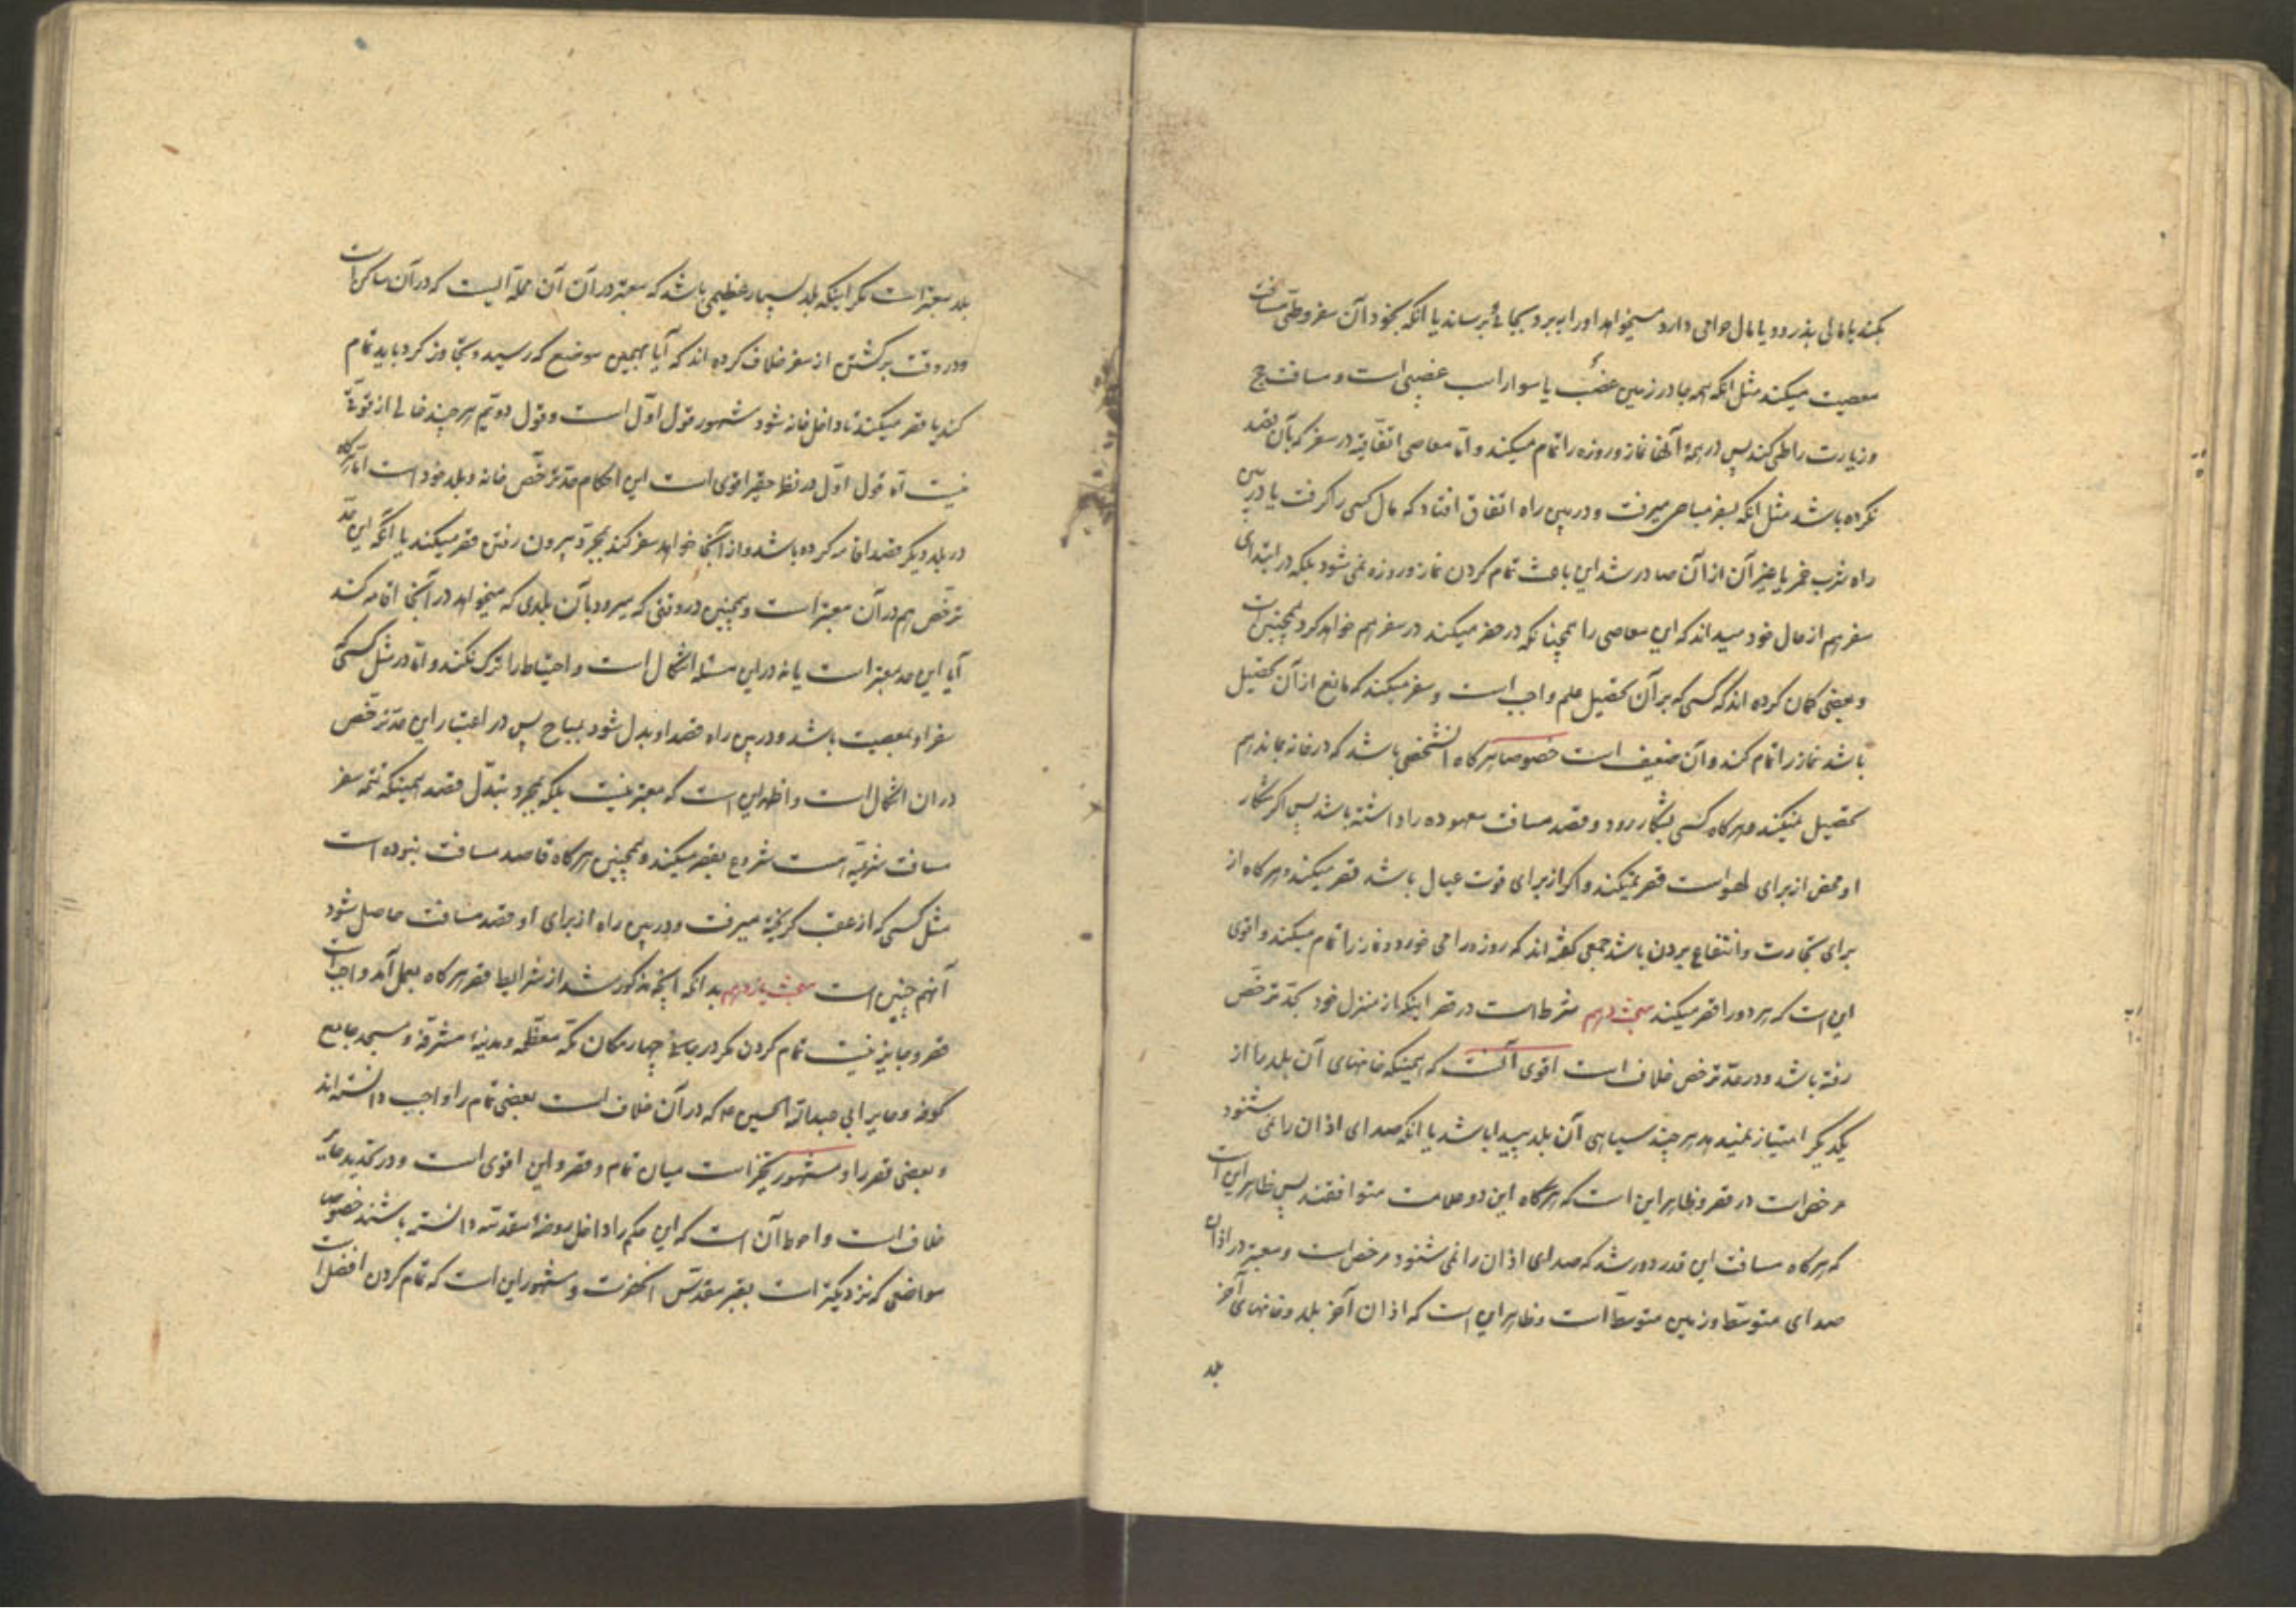 بکند یا مالی بدزدد یا مال حرامی دارد میخواهد او را ببرد بجائی برساند یا آنکه بخود آن سفر وطی مسافت
معصیت میکند مثل آنکه همه جا در زمین غصب یا سوار اسب غصبی است و مسافت حج
و زیارت را طی کند پس در همهٔ آنها نماز و روزه را تمام میکند و اما معاصی اتفاقیه در سفر که بآن قصد
نکرده باشد مثل آنکه بسفر مباحی میرفت و در بین راه اتفاق افتاد که مال کسی را گرفت یا در بین
راه شرب خمر یا غیر آن از آن صادر شد این باعث تمام کردن نماز و روزه نمی شود بلکه در ابتدای
سفر هم از حال خود میداند که این معاصی را همچنانکه در حضر میکند در سفر هم خواهد کرد همچنین است
و بعضی گمان کرده اند که کسی که بر آن تحصیل علم واجب است و سفر میکند که مانع از آن تحصیل
باشد نماز را تمام کند و آن ضعیف است خصوصا هرگاه آنشخص باشد که در خانه بماند هم
تحصیل نمیکند و هرگاه کسی بشکار رود و قصد مسافت معهوده را داشته باشد پس اگر شکار
او محض از برای لهو است قصر نمیکند و اگر از برای قوت عیال باشد قصر میکند و هرگاه از
برای تجارت و انتفاع بردن باشد جمعی گفته اند که روزه را می خورد و نماز را تمام میکند و اقوی
این است که هر دو را قصر میکند مبحث دهم شرط است در قصر اینکه از منزل خود بحد ترخص
رفته باشد و در حد ترخص خلاف است اقوی آنست که همینکه خانهای آن بلد ما از
یکدیگر امتیاز نمیدهد هر چند سیاهی آن بلد پیدا باشد یا آنکه صدای اذان را نمی شنود
مرخص است در قصر و ظاهر این است که هرگاه این دو علامت متوافقند پس ظاهر این است
که هرگاه مسافت این قدر دور شد که صدای اذان را نمی شنود مرخص است و معتبر در اذان
صدای متوسط و زمین متوسط است و ظاهر این است که اذان آخر بلد و خانهای آخر
بلد
بلد معتبر است مگر اینکه بلد بسیار عظیمی باشد که معتبر در آن آن محله ایست که در آن ساکن است
و در وقت برگشتن از سفر خلاف کرده اند که آیا بهمین موضع که رسید و تجاوز کرد باید تمام
کند یا قصر میکند تا داخل خانه شود مشهور قول اول است و قول دویم هر چند خالی از قوتی
نیست اما قول اول در نظر حقیر اقوی است این احکام حد ترخص خانه و بلد خود است اما هرگاه
در بلد دیگر قصد اقامه کرده باشد و از آنجا خواهد سفر کند بمجرد بیرون رفتن قصر میکند یا آنکه این حد
ترخص هم در آن معتبر است و همچنین در وقتی که میرود بآن بلدی که میخواهد در آنجا اقامه کند
آیا این حد معتبر است یا نه در این مسئله اشکال است و احتیاط را ترک نکند و اما در مثل کسی که
سفر او بمعصیت باشد و در بین راه قصد او بدل شود بمباح پس در اعتبار این حد ترخص
در آن اشکال است و اظهر این است که معتبر نیست بلکه بمجرد تبدل قصد همینکه تتمه سفر
مسافت شرعیه است شروع بقصر میکند و همچنین هرگاه قاصد مسافت نبوده است
مثل کسی که از عقب گریخته میرفت و در بین راه از برای او قصد مسافت حاصل شود
آنهم چنین است مبحث یازدهم بدانکه آنچه مذکور شد از شرایط قصر هرگاه بعمل آمد واجب است
قصر و جایز نیست تمام کردن مگر در چهار مکان مکه معظمه و مدینهٔ مشرفه و مسجد جامع
کوفه و حایر ابی عبدالله الحسین ع که در آن خلاف است بعضی تمام را واجب دانسته اند
و بعضی قصر را و مشهور تخییر است میان تمام و قصر و این اقوی است و در تحدید حایر
خلاف است و احوط آن است که این حکم را داخل روضهٔ مقدسه دانسته باشند خصوص
مواضعی که نزدیکتر است بقبر مقدس آنحضرت و مشهور این است که تمام کردن افضل است